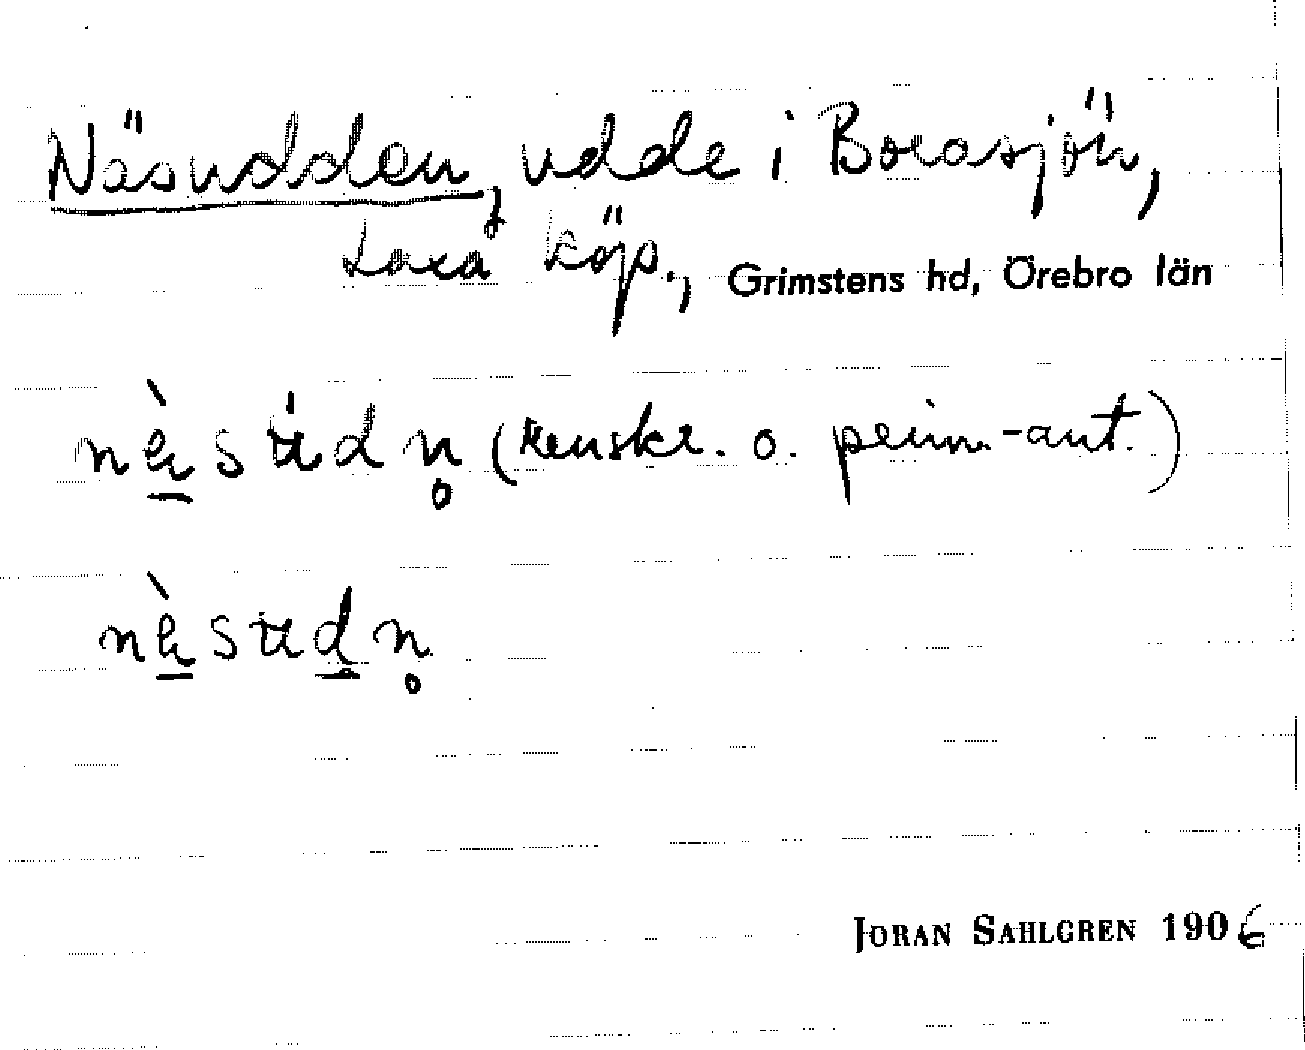 Näsudden, udde i Borasjön,
Laxå köp., Grimstens hd, Örebro län
(renskr. o. prim.-ant.)
JORAN SAHLGREN 1906